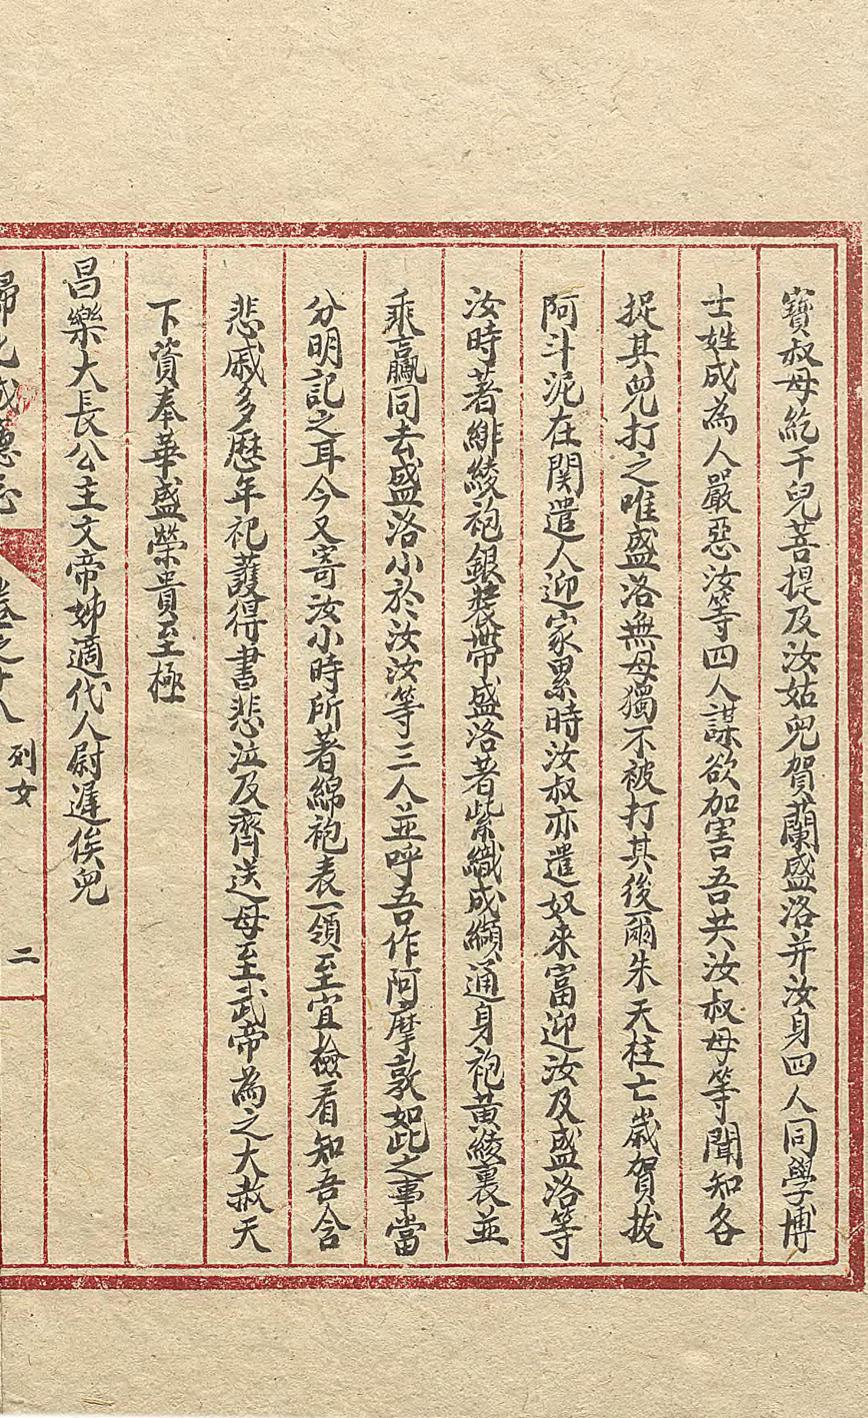 寶叔母紇干兒菩提及汝姑兒賀蘭盛洛并汝身四人同學博
士姓成為人嚴惡汝等四人謀欲加害吾共汝叔母等聞知各
捉其兒打之唯盛洛無母獨不被打其後爾朱天柱亡歲賀拔
阿斗泥在関遣人迎家累時汝叔亦遣奴來富迎汝及盛洛等
汝時著緋綾袍銀裝帶盛洛著紫織成纈通身袍黃綾裏並
乘騾同去盛洛小於汝汝等三人並呼吾作阿摩敦如此之事當
分明記之耳今又寄汝小時所著綿袍表一領至宜檢看知吾含
悲戚多歷年祀護得書悲泣及齊送母至武帝為之大赦天
下資奉華盛榮貴至極
昌樂大長公主文帝姊適代人尉遲俟兜
歸化
卷之十八
列女
二